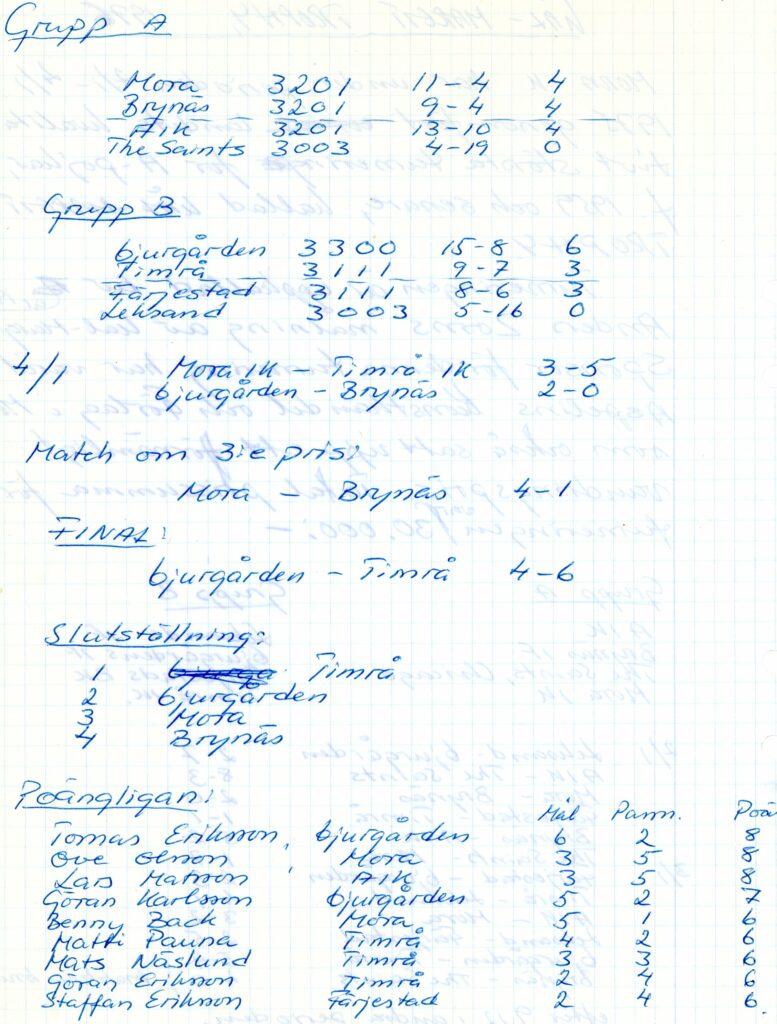 Grupp A
Mora 3201 11-4 4
Brynäs 3201 9-4 4
AIK 3201 13-10 4
The Saints 3003 4-19 0
Grupp B
bjurgården 3300 15-8 6
Timrå 3111 9-7 3
Färjestad 3111 8-6 3
Leksand 3003 5-16 0
4/1 Mora IK - Timrå IK 3-5
bjurgården - Brynäs 2-0
Match om 3:e pris:
Mora - Brynäs 4-1
FINAL:
bjurgården - Timrå 4-6
Slutställning:
1 Timrå
2 bjurgården
3 Mora
4 Brynäs
Poängligan: Mål Pass. Poä
Tomas Eriksson, bjurgården 6 2 8
Ove Olsson, Mora 3 5 8
Lars Matsson AIK 3 5 8
Göran Karlsson bjurgården 5 2 7
Benny Back Mora 5 1 6
Matti Pauna Timrå 4 2 6
Mats Näslund Timrå 3 3 6
Göran Eriksson Timrå 2 4 6
Staffan Eriksson Färjestad 2 4 6.